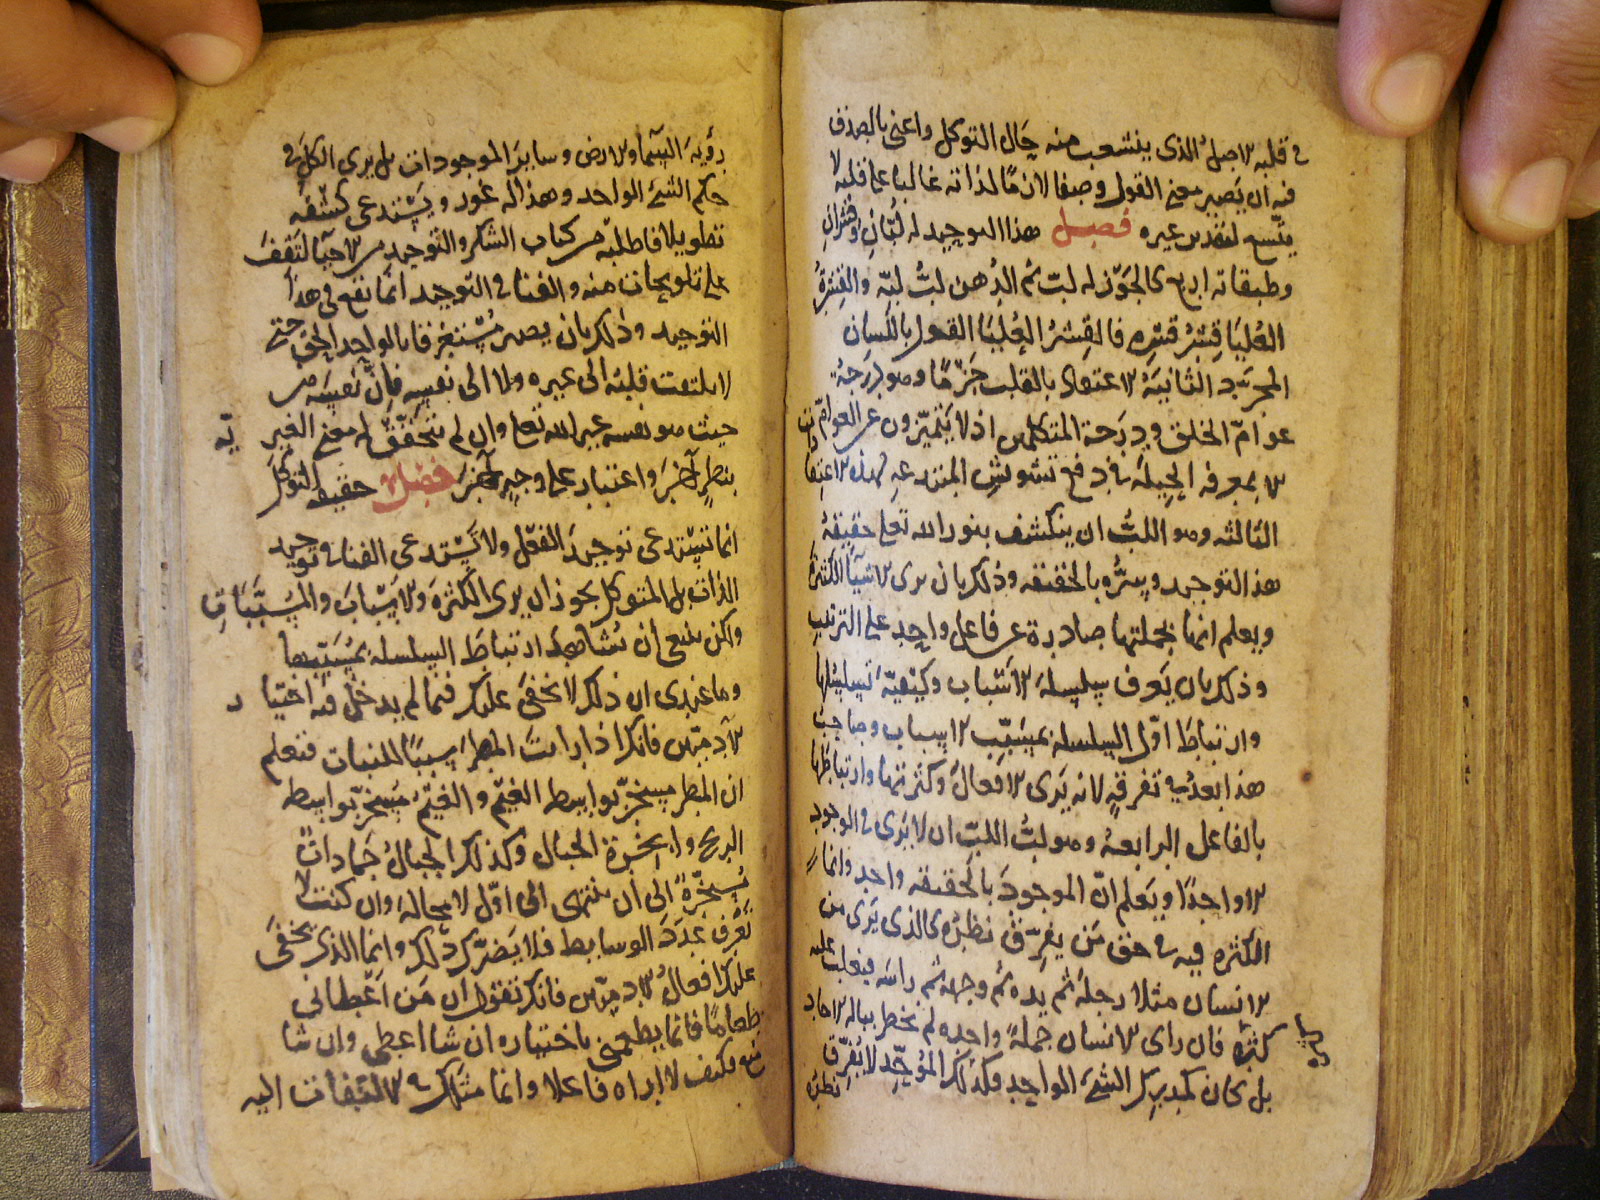 في قلبه الاصل الذي ينشعب منه حال التوكل واعني بالصدق
فيه ان يصير معنى القول وصفا لازما لذاته غالبا على قلبه لا
يتسع لتقدير غيره فصل هذا التوحيد له لبان وقشران
وطبقاته اربع كالجوز له لب ثم الدهن لب لبه والقشرة
العليا قشر قشره فالقشر العليا القول باللسان
المجرد الثانية الاعتقاد بالقلب جزما وهو درجة
عوام الخلق ودرجة المتكلمين اذ لا يتميزون عن العوام
الا بمعرفة الحيلة في دفع تشويش المبتدعه لهذه الاعتقادات
الثالثه وهو اللب ان ينكشف بنور الله تعلى حقيقة
هذا التوحيد وسره بالحقيقه وذلك بان يرى الاشيا الكثرة
ويعلم انها بجملتها صادرة عن فاعل واحد على الترتيب
وذلك بان يعرف سلسلة الاسباب وكيفية تسلسلها
وارتباط اول السلسله بمسبب الاسباب وصاحب
هذا بعد في تفرقه لانه يرى الافعال وكثرتها وارتباطها
بالفاعل الرابعة وهو لب اللب ان لا يرى في الوجود
الا واحدا ويعلم ان الموجود بالحقيقه واحد وانما
الكثره فيه في حق من يفرق نظره كالذي يرى من
الانسان مثلا رجله ثم يده ثم وجهه ثم راسه فيغلب عليه
كثرة فان راى الانسان جملة واحده لم يخطر بباله الاحاد
بل كان كمدرك الشئ الواحد فكذلك الموحد لا يفرق
نظره
رؤية السما والارض وساير الموجودات بل يرى الكل في
حكم الشئ الواحد وهذا له غور ويستدعي كشفه
تطويلا فاطلبه من كتاب الشكر والتوحيد من الاحيا لتقف
على تلويحات منه والفنا في التوحيد انما يقع في هذا
التوحيد وذلك بان يصير مستغرقا بالواحد الحق حتى
لا يلتفت قلبه الى غيره ولا الى نفسه فان نفسه من
حيث هو نفسه غير الله تعلى وان لم يتحقق له معنى الغيرية
بنظر آخر واعتبار على وجه آخر فصل حقيقة التوكل
انما تستدعي توحيد الفعل ولا تستدعي الفنا في توحيد
الذات بل المتوكل يجوز ان يرى الكثرة والاسباب والمسببات
ولكن ينبغي ان يشاهد ارتباط السلسله بمسببها
وما عندي ان ذلك لا يخفى عليك فيما لم يدخل فيه اختيار
الآدميين فانك اذا رايت المطر سببا للنبات فتعلم
ان المطر مسخر بواسطة الغيم والغيم مسخر بواسطة
الريح وابخرة الجبال وكذلك الجبال جمادات
مسخرة الى ان ينتهي الى اول لا محالة وان كنت لا
تعرف عدد الوسايط فلا يضرك ذلك وانما الذي يخفى
عليك افعال الادميين فانك تقول ان من اعطاني
طعاما فانما يطعمني باختياره ان شا اعطى وان شا
منع فكيف لا اراه فاعلا وانما مثلك في الالتفات اليه